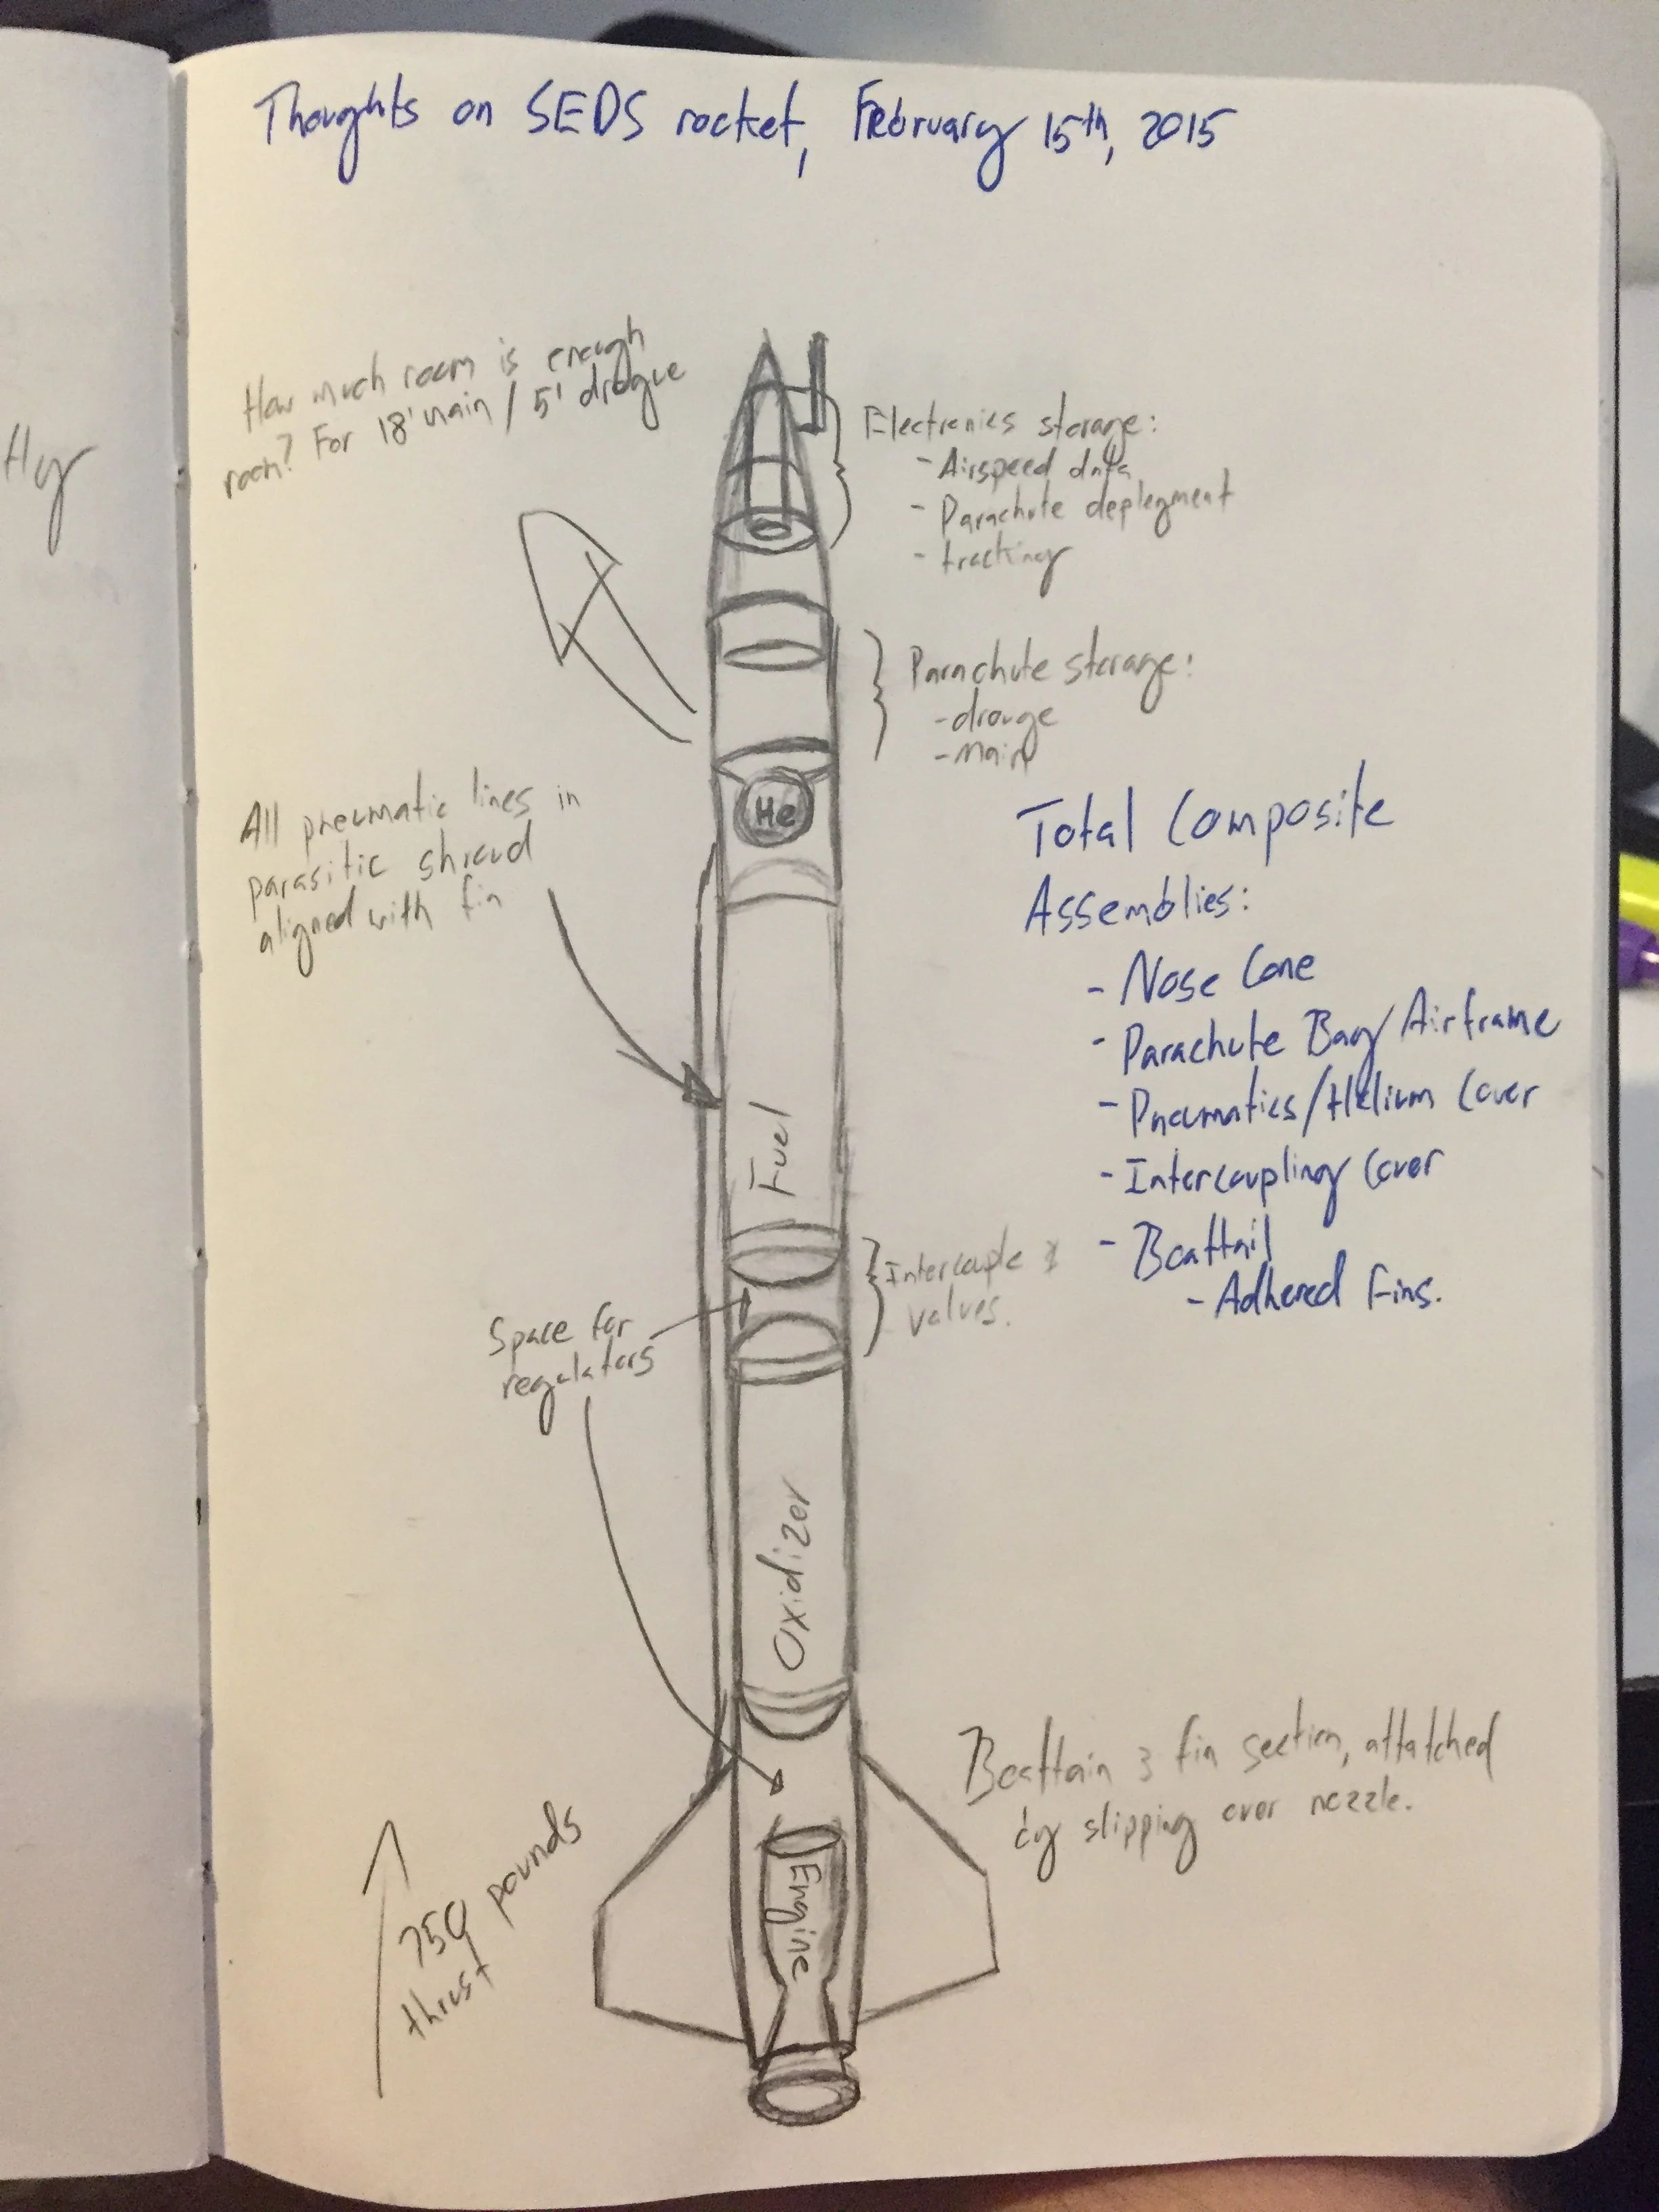 Thoughts on SEDS rocket, February 15th, 2015
How much room is enough
room? For 18' main / 5' drogue
Electronics storage:
- Airspeed data
- Parachute deployment
- tracking
Parachute storage:
- drouge
- Main
He
All pneumatic lines in
parasitic shroud
aligned with fin
Total Composite
Assemblies:
- Nose Cone
- Parachute Bay/Airframe
- Pneumatics/Helium Cover
- Intercoupling Cover
- Boattail
- Adhered Fins.
Fuel
Intercouple &
valves.
Space for
regulators
Oxidizer
Boattain & fin section, attatched
by slipping over nozzle.
750 pounds
thrust
Engine